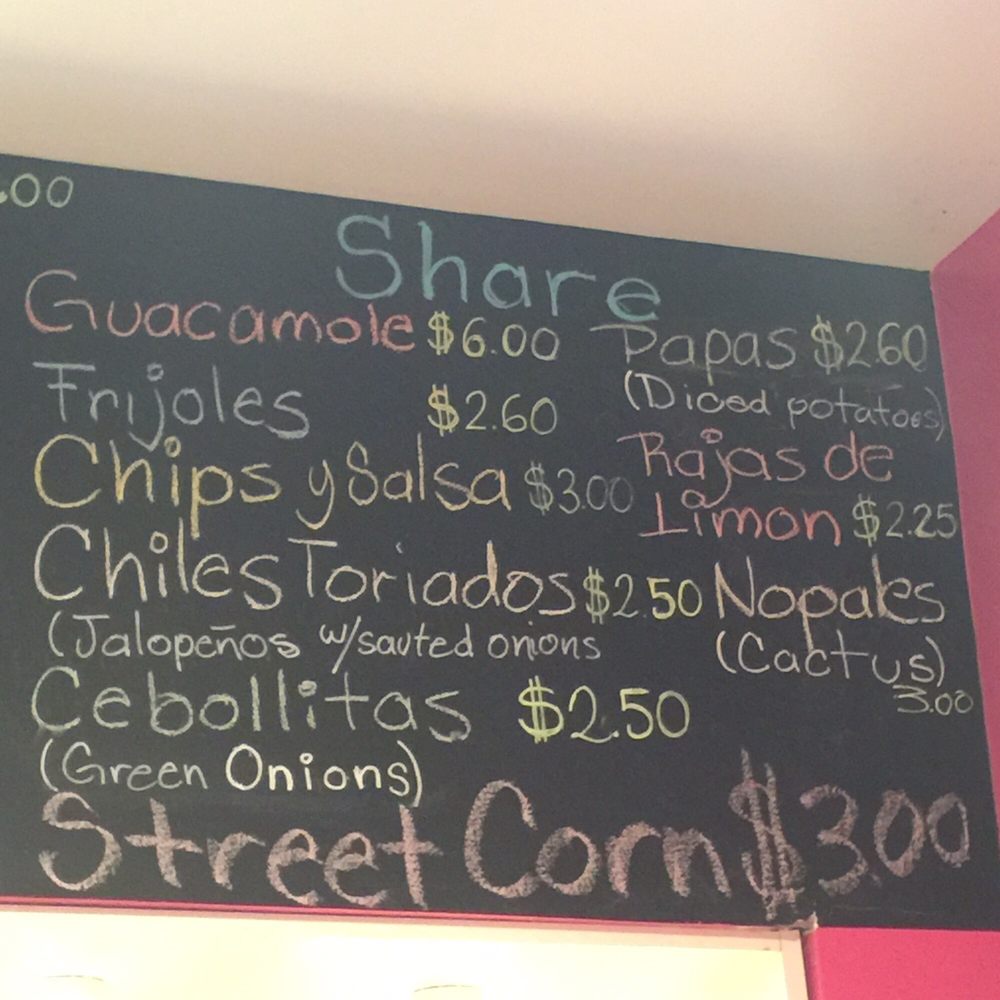 .00
Share
Guacamole $6.00
Frijoles $2.60
Chips y Salsa $3.00
Chiles Toriados $2.50
(Jalopeños w/sauted onions
Cebollitas $2.50
(Green Onions)
Papas $2.60
(Diced potatoes)
Rajas de
Limon $2.25
Nopales
(Cactus)
3.00
Street Corn $3.00